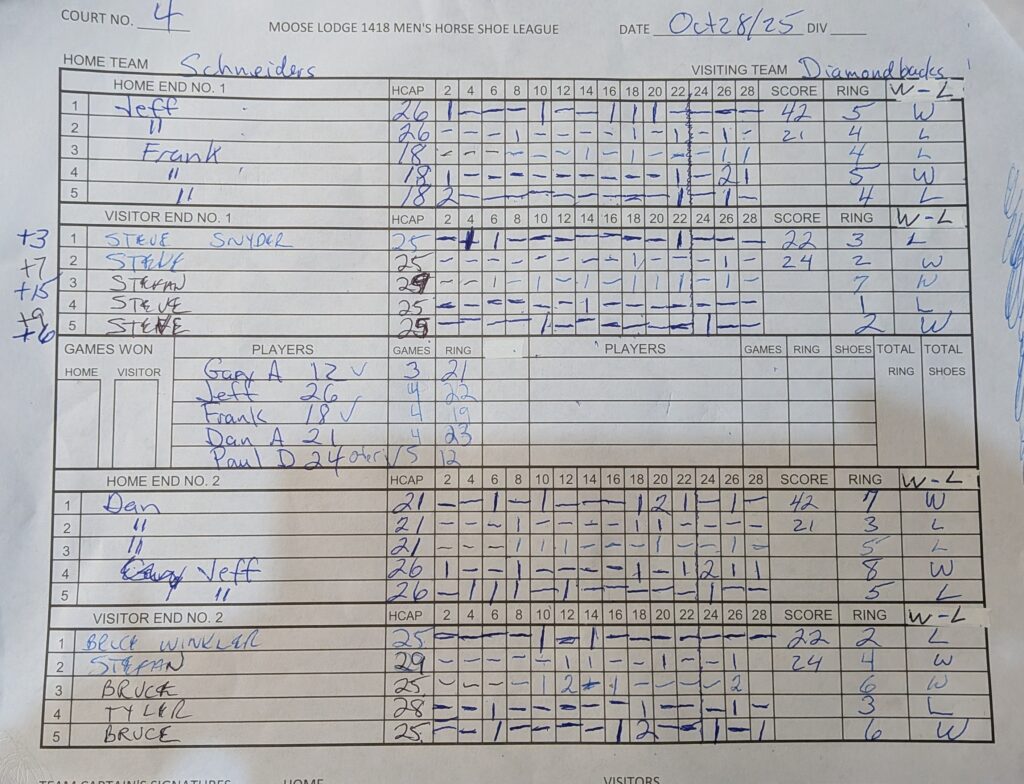 COURT NO. 4 MOOSE LODGE 1418 MEN'S HORSE SHOE LEAGUE DATE Oct 28/25 DIV
HOME TEAM Schneiders VISITING TEAM Diamondbacks
HOME END NO. 1 HCAP 2 4 6 8 10 12 14 16 18 20 22 24 26 28 SCORE RING W-L
1 Jeff 26 1 – – – 1 – – 1 1 1 – – – – 42 5 W
2 " 26 – – – 1 – – – – 1 – 1 – 1 – 21 4 L
3 Frank 18 – – – – – – 1 – 1 – – – 1 1 4 L
4 " 18 1 – – – – – – – – – 1 – 2 1 5 W
5 " 18 2 – – – – – – – – – 1 – 1 – 4 L
VISITOR END NO. 1 HCAP 2 4 6 8 10 12 14 16 18 20 22 24 26 28 SCORE RING W-L
+3 1 STEVE SNYDER 25 – 1 1 – – – – – – – 1 – – – 22 3 L
+7 2 STEVE 25 – – – – – – – – 1 – – – 1 – 24 2 W
+15 3 STEFAN 29 – – 1 – 1 – 1 1 1 1 1 – 1 – 7 W
+9 4 STEVE 25 – – – – – – 1 – – – – – – – 1 L
+6 5 STEVE 25 – – – – 1 – – – – – – 1 – – 2 W
GAMES WON PLAYERS GAMES RING PLAYERS GAMES RING SHOES TOTAL TOTAL
HOME VISITOR RING SHOES
Gary A 12 ✓ 3 21
Jeff 26 4 22
Frank 18 ✓ 4 19
Dan A 21 4 23
Paul D 24 ✓ 5 12
HOME END NO. 2 HCAP 2 4 6 8 10 12 14 16 18 20 22 24 26 28 SCORE RING W-L
1 Dan 21 – – 1 – 1 – – – 1 2 1 – 1 – 42 7 W
2 " 21 – – – 1 – – – – 1 1 – – – – 21 3 L
3 " 21 – – – 1 1 1 – – – 1 – – 1 – 5 L
4 Jeff 26 1 – – 1 – – – – 1 – 1 2 1 1 8 W
5 " 26 – 1 1 1 – 1 – – – – – 1 – – 5 L
VISITOR END NO. 2 HCAP 2 4 6 8 10 12 14 16 18 20 22 24 26 28 SCORE RING W-L
1 BRUCE WINKLER 25 – – – – 1 – 1 – – – – – – – 22 2 L
2 STEFAN 29 – – – – – 1 1 – – 1 – – 1 – 24 4 W
3 BRUCE 25 – – – – 1 2 – 1 – – – – 2 – 6 W
4 TYLER 28 – – 1 – – – – – 1 – – – 1 – 3 L
5 BRUCE 25 – – 1 – – – – 1 2 – – 1 – 1 6 W
TEAM CAPTAIN'S SIGNATURES HOME VISITORS